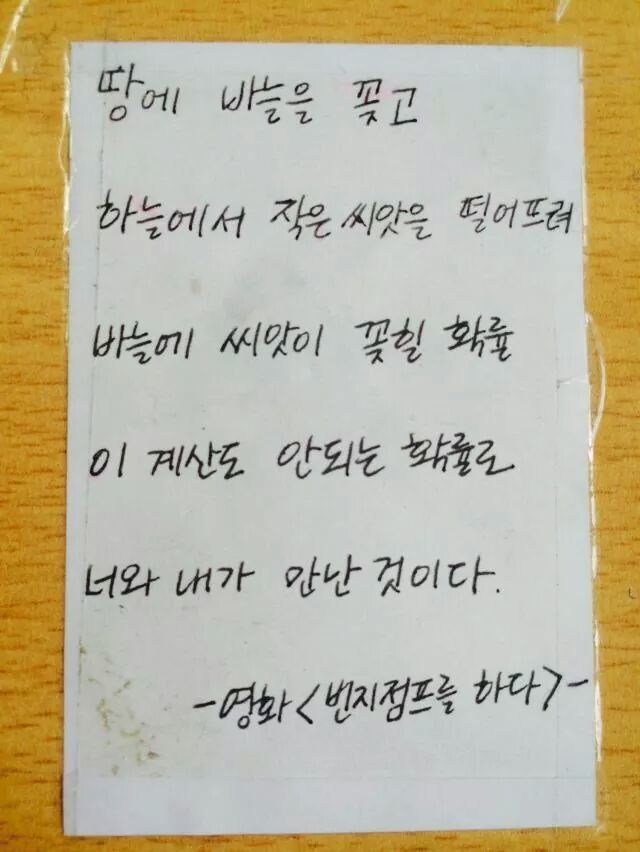 땅에 바늘을 꽂고
하늘에서 작은 씨앗을 떨어뜨려
바늘에 씨앗이 꽂힐 확률
이 계산도 안되는 확률로
너와 내가 만난 것이다.
-영화<번지점프를 하다>-